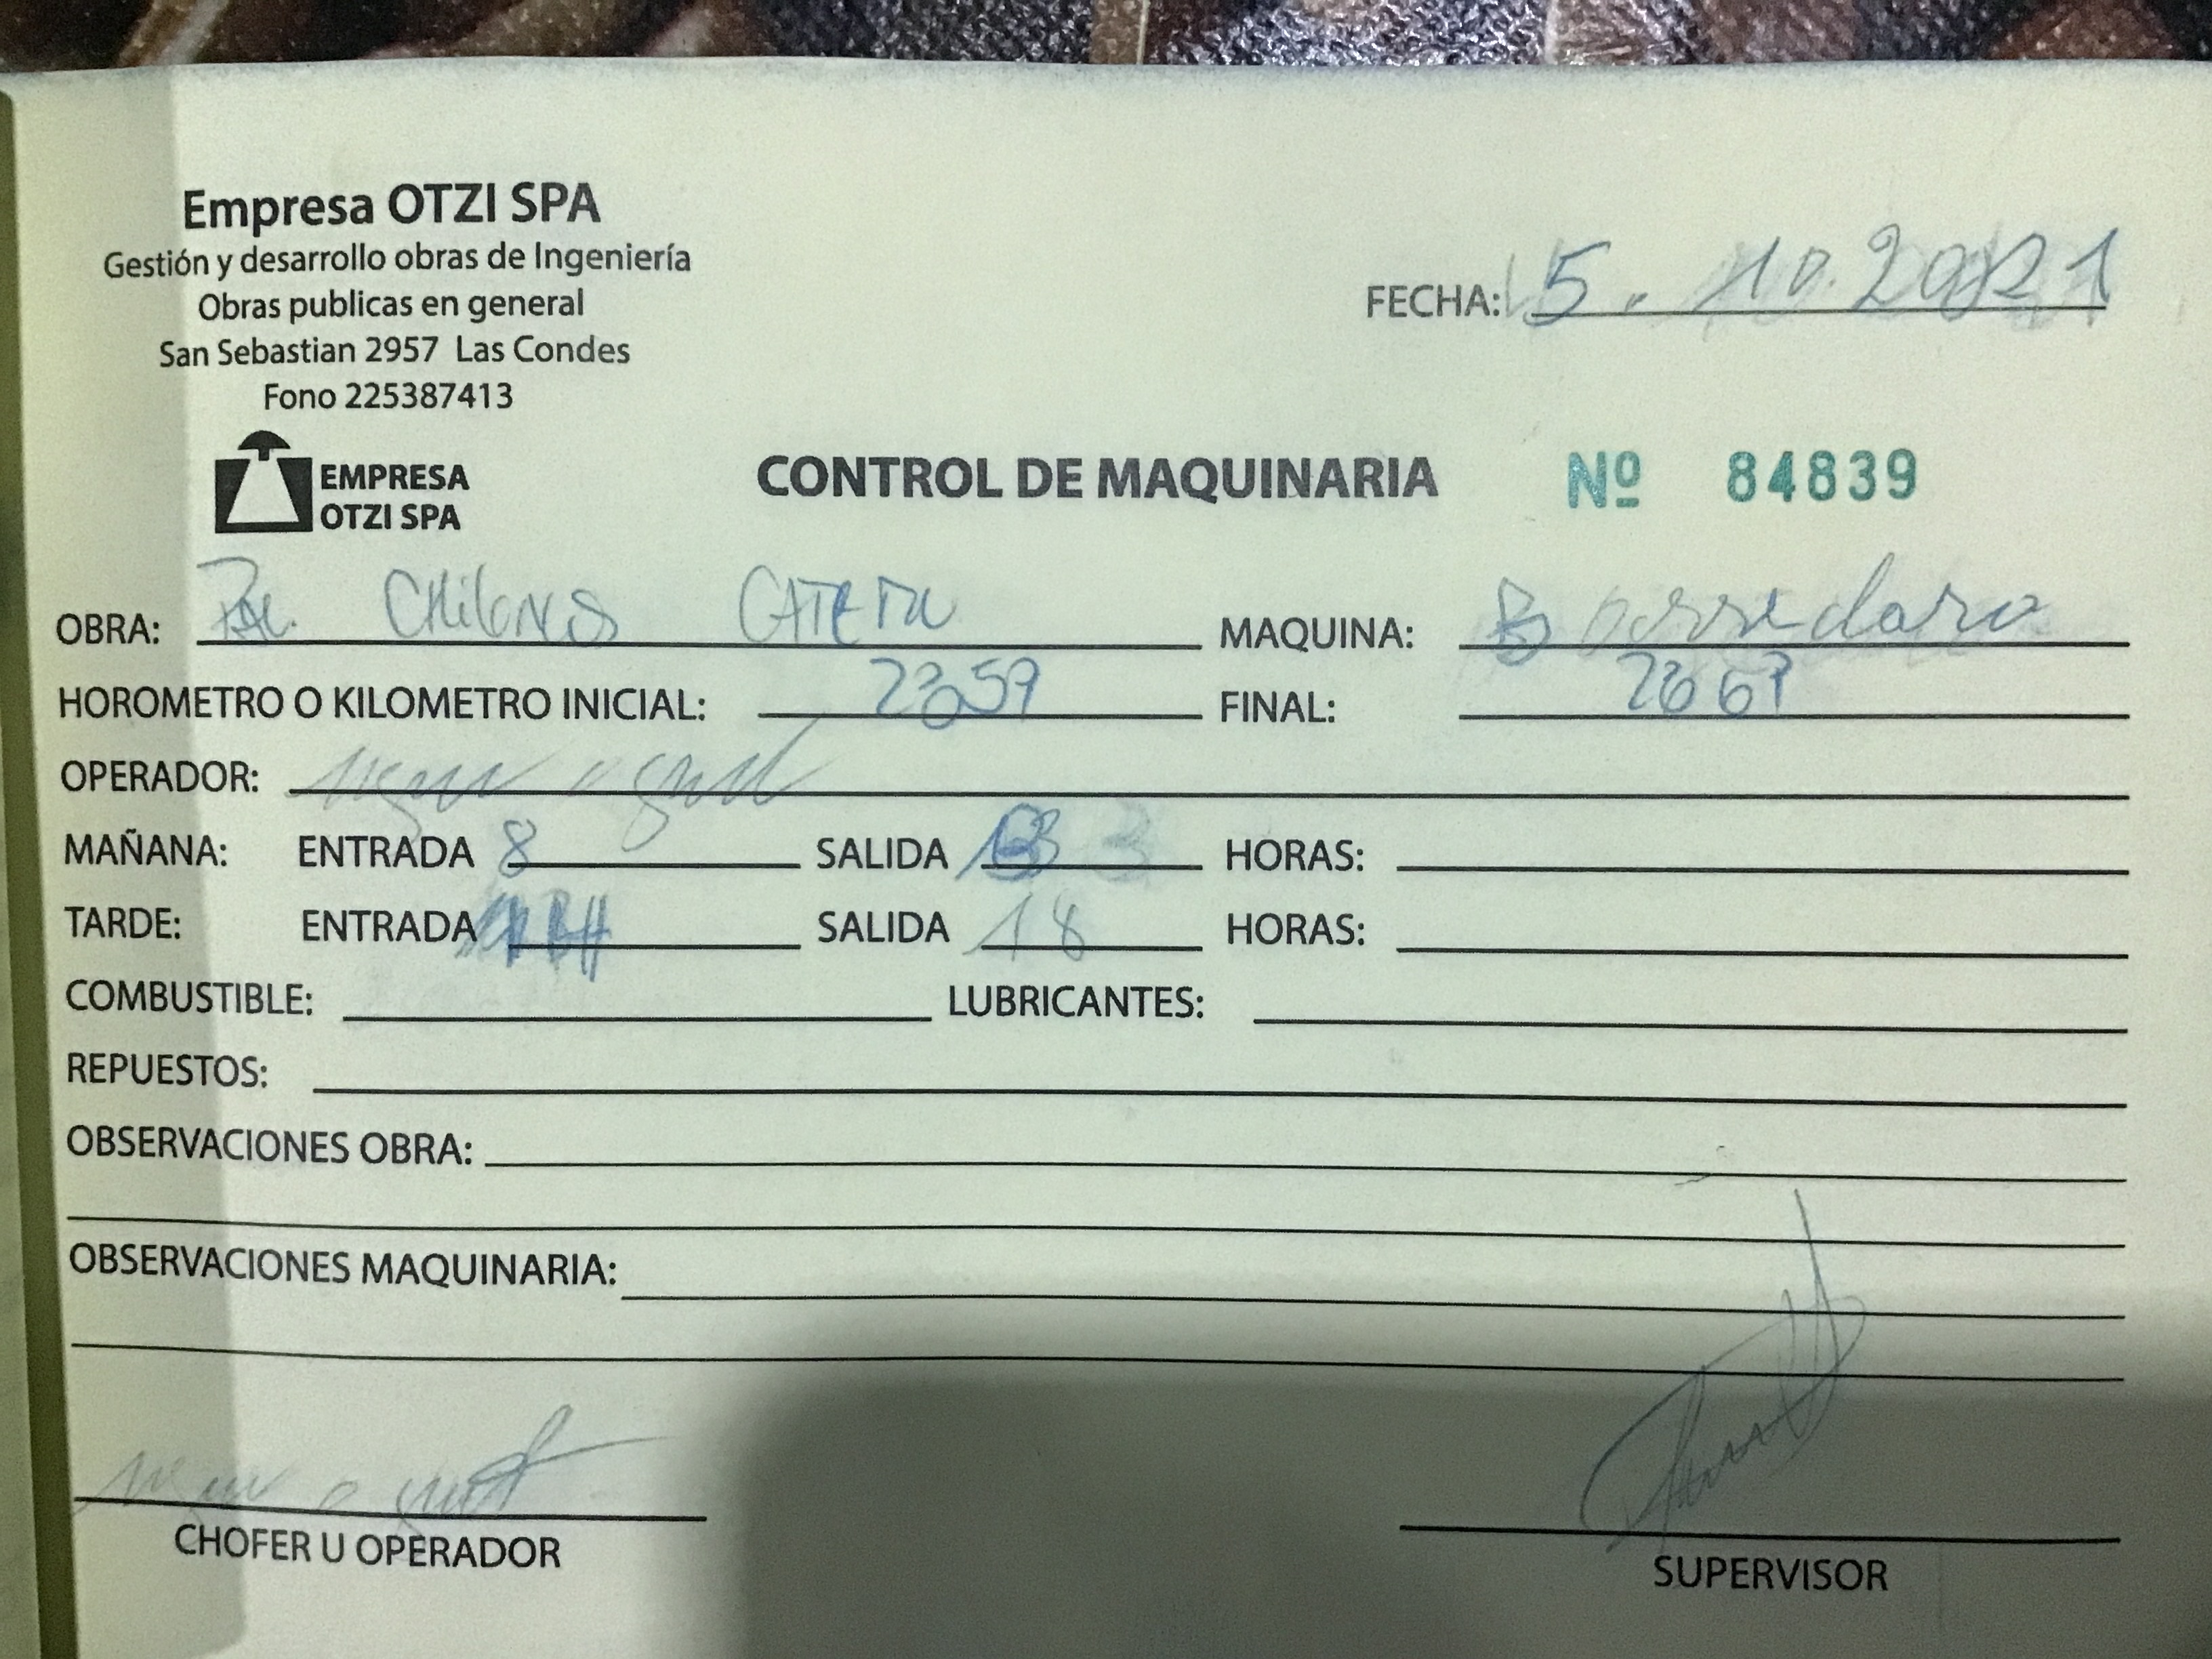 Empresa OTZI SPA
Gestión y desarrollo obras de Ingeniería
Obras publicas en general
San Sebastian 2957 Las Condes
Fono 225387413
FECHA: 5. 10. 2021
EMPRESA
OTZI SPA
CONTROL DE MAQUINARIA Nº 84839
OBRA: MAQUINA: Barredora
HOROMETRO O KILOMETRO INICIAL: FINAL:
OPERADOR:
MAÑANA: ENTRADA 8 SALIDA 13 HORAS:
TARDE: ENTRADA SALIDA 18 HORAS:
COMBUSTIBLE: LUBRICANTES:
REPUESTOS:
OBSERVACIONES OBRA:
OBSERVACIONES MAQUINARIA:
CHOFER U OPERADOR
SUPERVISOR